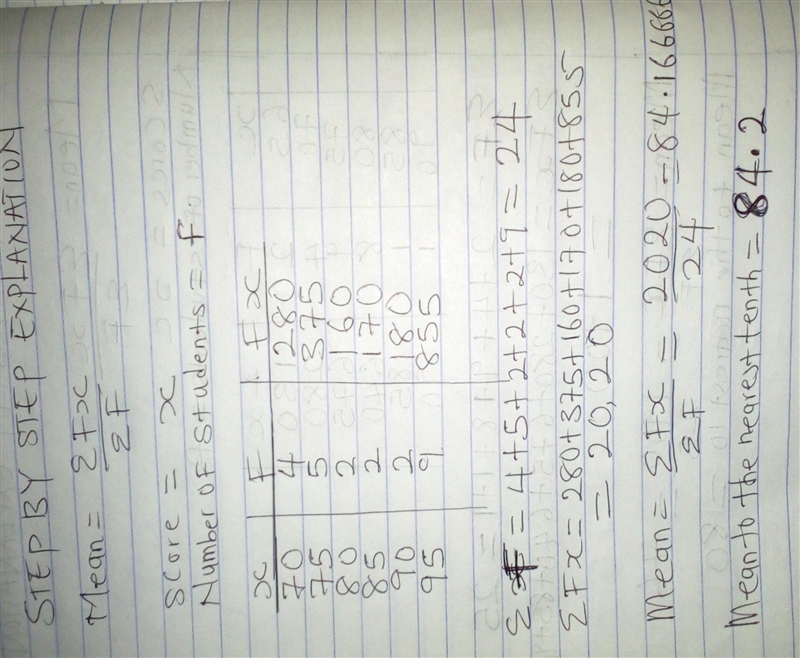 STEP BY STEP EXPLANATION
Mean = ΣFx
ΣF
Score = x
Number of students = f
x F Fx
70 4 280
75 5 375
80 2 160
85 2 170
90 2 180
95 9 855
ΣF = 4+5+2+2+2+9 = 24
ΣFx = 280+375+160+170+180+855
= 20,20
Mean = ΣFx = 2020 = 84.16666
ΣF 24
Mean to the nearest tenth = 84.2